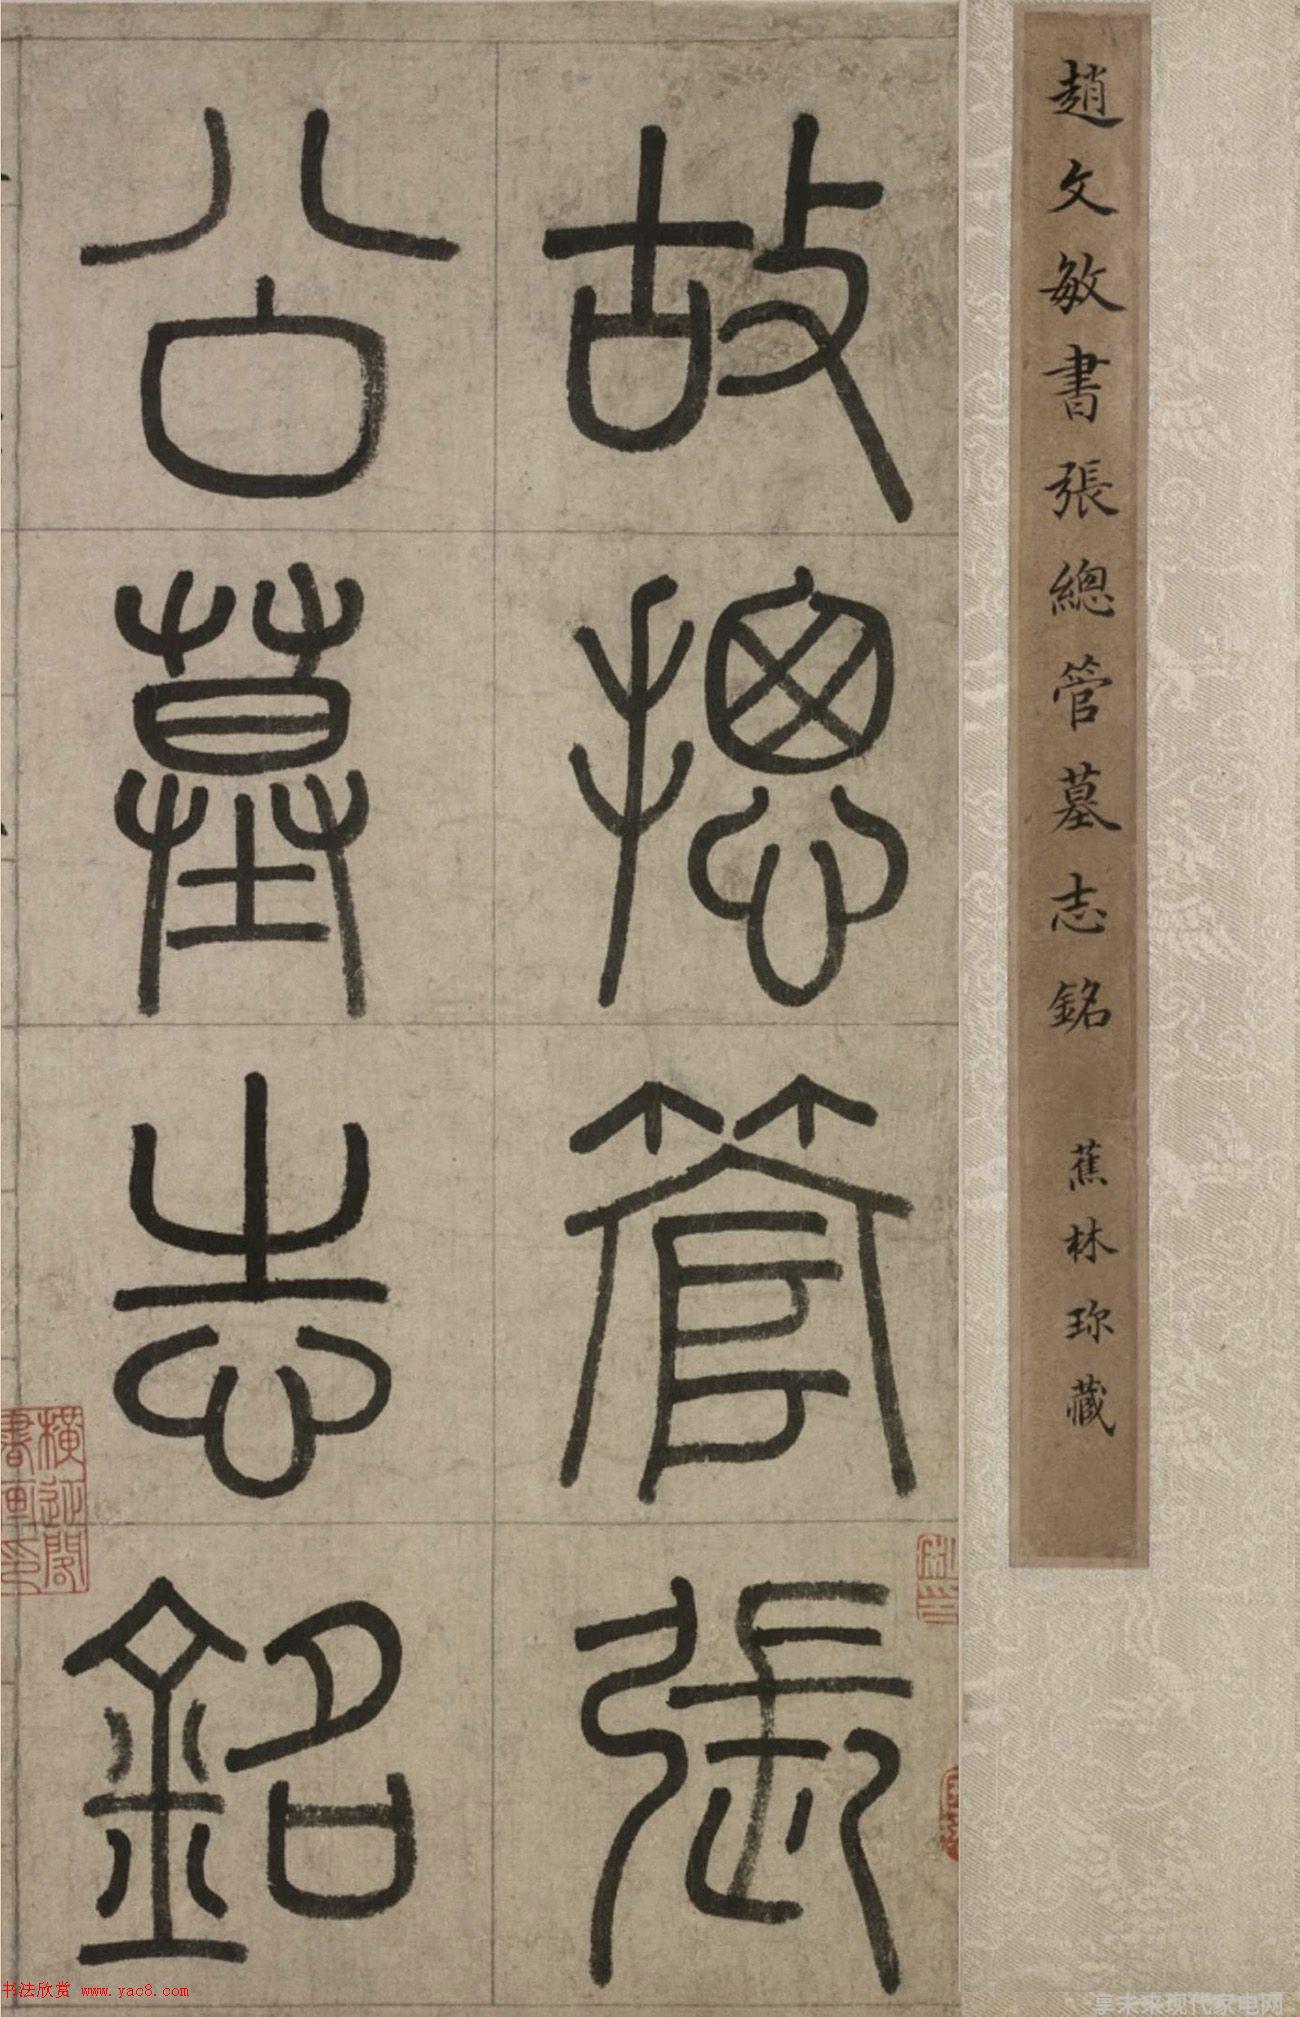 趙文敏書張總管墓志銘 蕉林珎藏
故揔管張
公墓志銘
橫近閣
書畫印
书法欣赏 www.yac8.com
享未来现代家电网